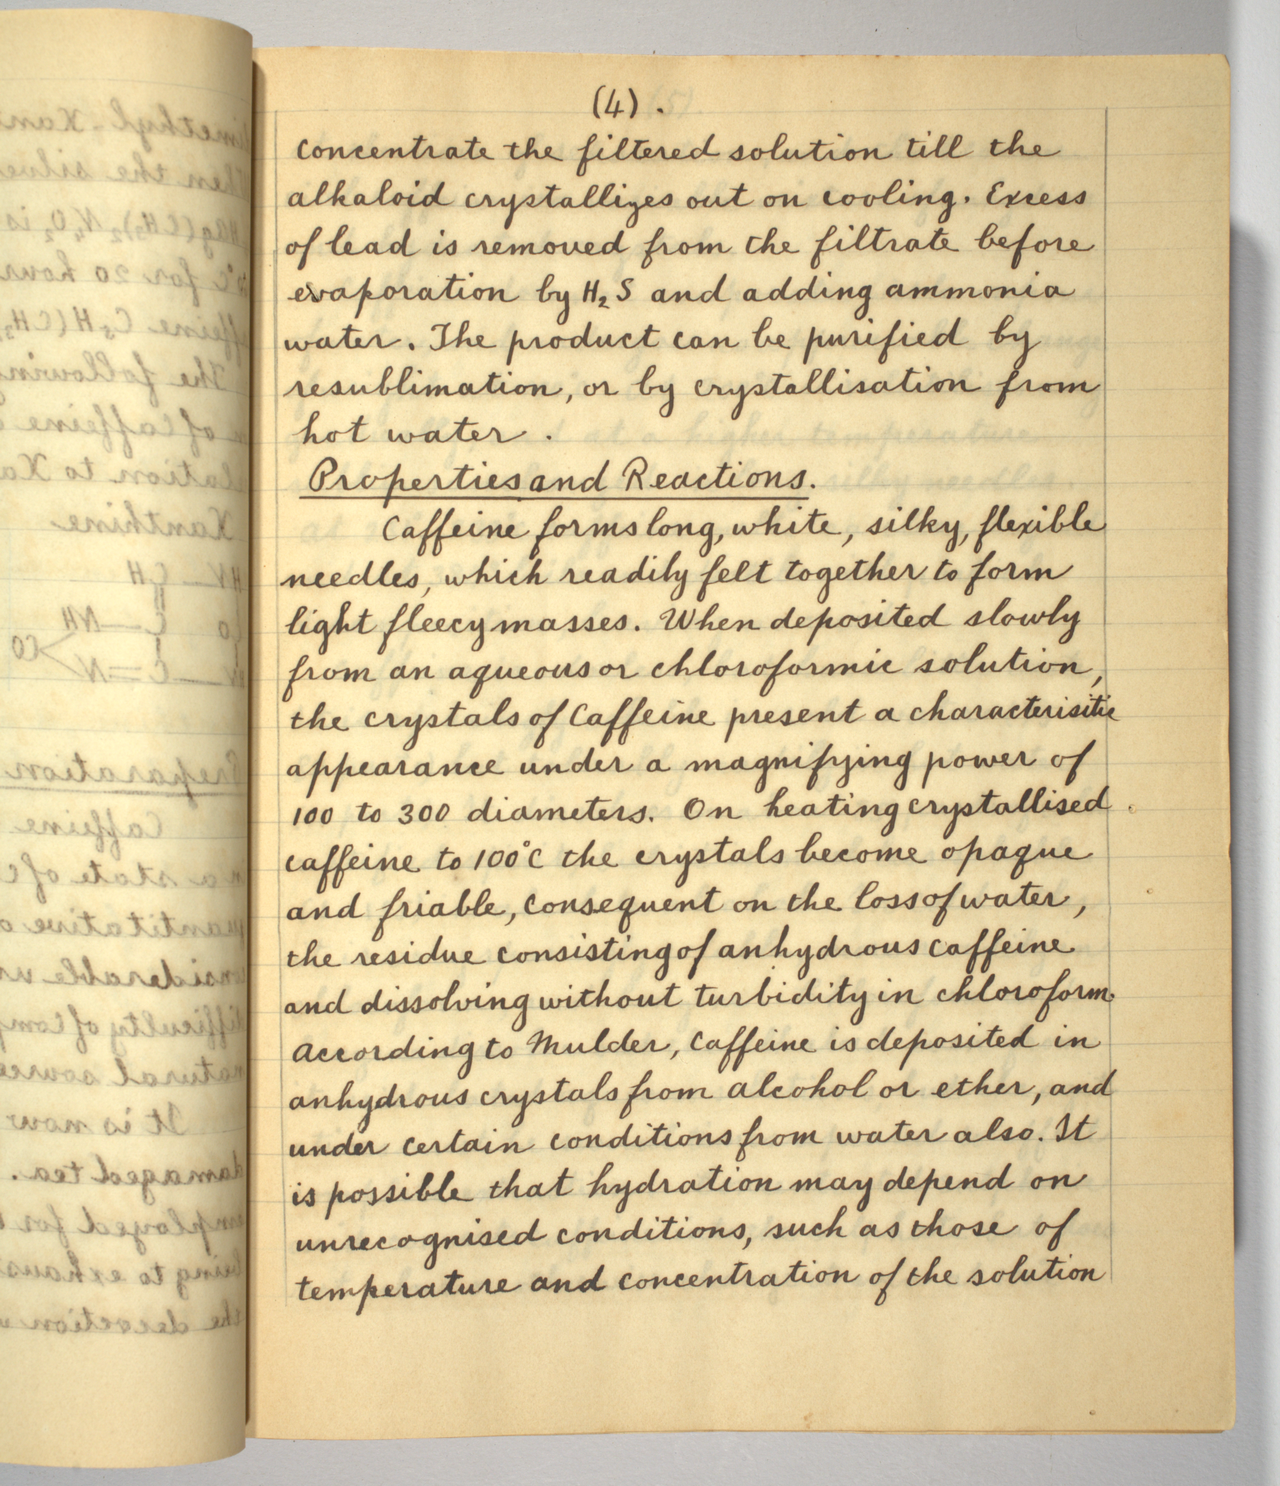 (4).
concentrate the filtered solution till the
alkaloid crystallizes out on cooling. Excess
of lead is removed from the filtrate before
evaporation by H₂S and adding ammonia
water. The product can be purified by
resublimation, or by crystallisation from
hot water.
Properties and Reactions.
Caffeine forms long, white, silky, flexible
needles, which readily felt together to form
light fleecy masses. When deposited slowly
from an aqueous or chloroformic solution,
the crystals of Caffeine present a characterisitic
appearance under a magnifying power of
100 to 300 diameters. On heating crystallised
caffeine to 100°C the crystals become opaque
and friable, consequent on the loss of water,
the residue consisting of anhydrous caffeine
and dissolving without turbidity in chloroform.
According to Mulder, Caffeine is deposited in
anhydrous crystals from alcohol or ether, and
under certain conditions from water also. It
is possible that hydration may depend on
unrecognised conditions, such as those of
temperature and concentration of the solution